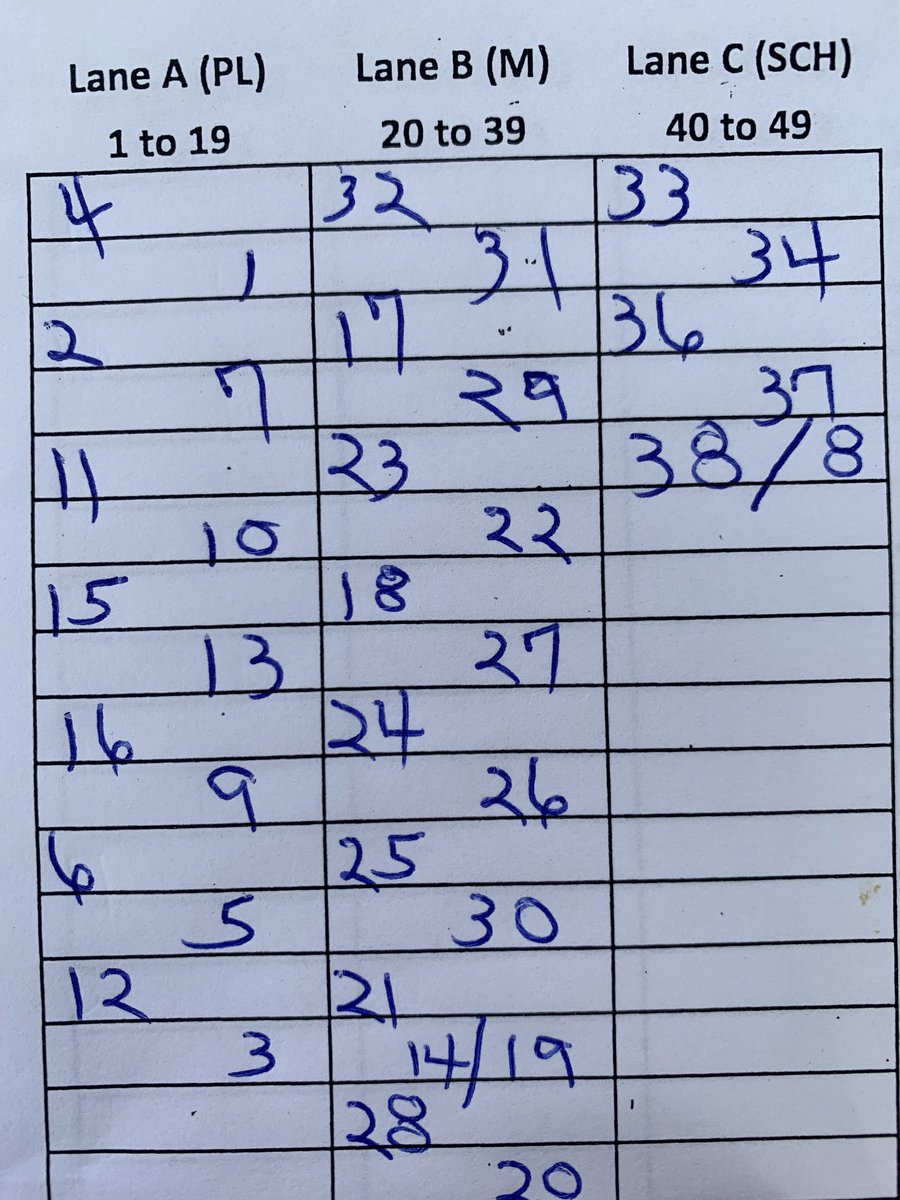 Lane A (PL) Lane B (M) Lane C (SCH)
1 to 19 20 to 39 40 to 49
4 32 33
1 31 34
2 17 36
7 29 37
11 23 38/8
10 22
15 18
13 27
16 24
9 26
6 25
5 30
12 21
3 14/19
28
20